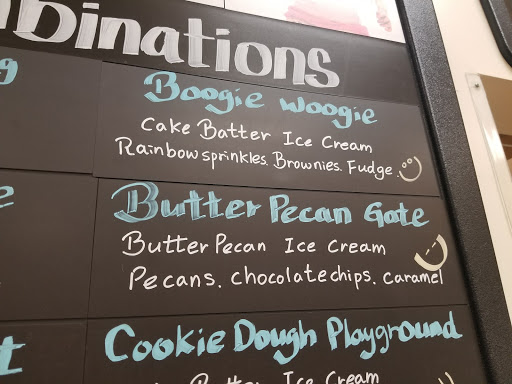 binations
Boogie Woogie
Cake Batter Ice Cream
Rainbow sprinkles. Brownies. Fudge.
Butter Pecan Gate
Butter Pecan Ice Cream
Pecans. chocolate chips. caramel
Cookie Dough Playground
Batter Ice Cream